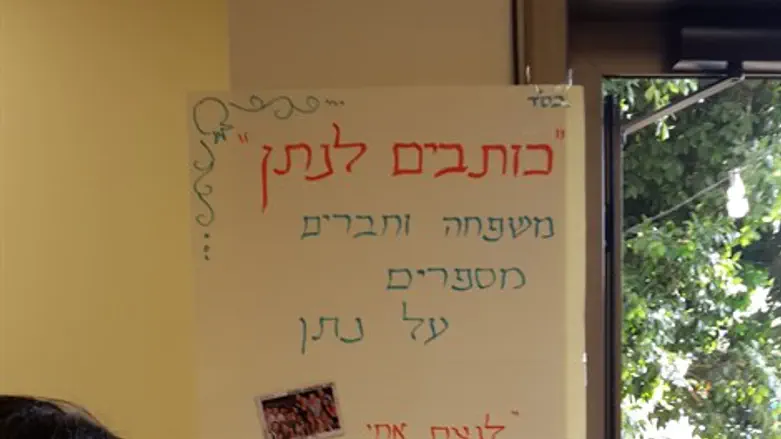 בס"ד
"כותבים לנתן"
משפחה וחברים
מספרים
על נתן